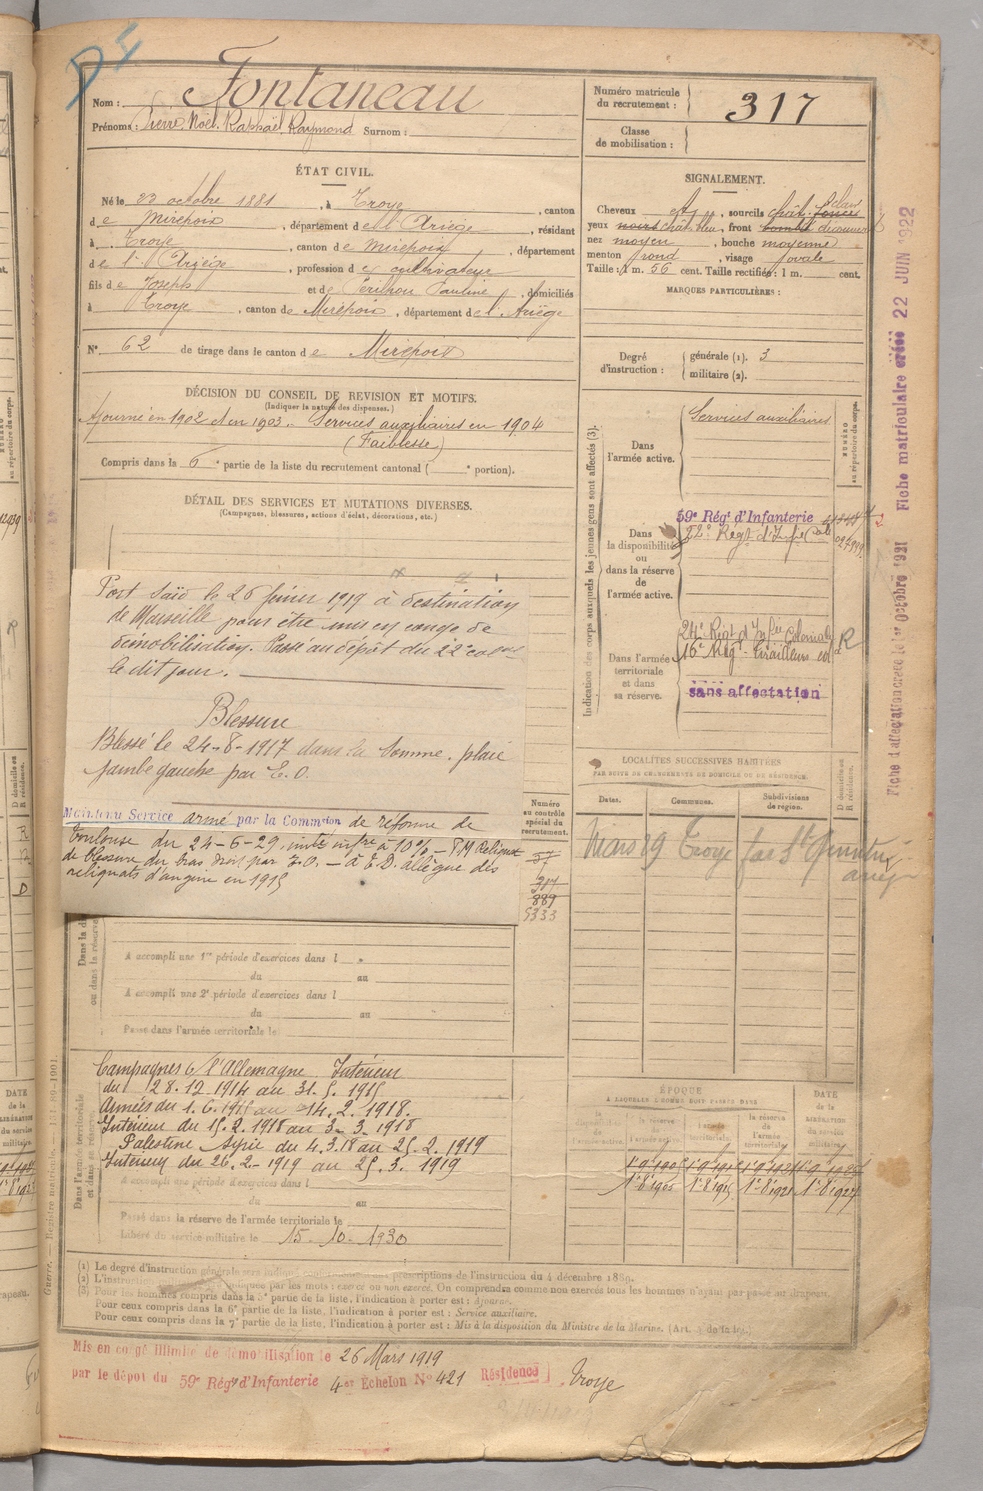 Nom : Fontaneau
Prénoms : Pierre, Noël, Raphaël, Raymond Surnom :
Numéro matricule du recrutement : 317
Classe de mobilisation :
ÉTAT CIVIL.
Né le 23 octobre 1881, à Troye, canton
de Mirepoix, département de l'Ariège, résidant
à Troye, canton de Mirepoix, département
de l'Ariège, profession de cultivateur
fils de Joseph et de Perilhou Pauline, domiciliés
à Troye, canton de Mirepoix, département de l'Ariège
N° 62 de tirage dans le canton de Mirepoix
SIGNALEMENT.
Cheveux, sourcils chât. clair
yeux chât. bleu, front découvert
nez moyen, bouche moyenne
menton rond, visage ovale
Taille : 1 m. 56 cent. Taille rectifiée : 1 m. cent.
MARQUES PARTICULIÈRES :
Degré d'instruction : générale (1). 3
militaire (2).
DÉCISION DU CONSEIL DE REVISION ET MOTIFS.
(Indiquer la nature des dispenses.)
Ajourné en 1902 et en 1903. Services auxiliaires en 1904
(Faiblesse)
Compris dans la 6e partie de la liste du recrutement cantonal ( e portion).
DÉTAIL DES SERVICES ET MUTATIONS DIVERSES.
(Campagnes, blessures, actions d'éclat, décorations, etc.)
Port Saïd le 26 février 1919 à destination
de Marseille pour être mis en congé de
démobilisation. Passé au dépôt du 22e colal
le dit jour.
Blessure
Blessé le 24-8-1917 dans la Somme, plaie
jambe gauche par E. O.
Maintenu Service armé par la Commion de réforme de
Toulouse du 24-6-29 invté infre à 10% - P M Reliquat
de blessure du bras droit par E.O. - à E.D. allègue des
reliquats d'angine en 1915
Numéro au contrôle spécial du recrutement.
57
317
889
5333
Indication des corps auxquels les jeunes gens sont affectés (3).
Dans l'armée active.
Services auxiliaires
NUMÉRO au répertoire du corps.
Dans la disponibilité ou dans la réserve de l'armée active.
59e Régt d'Infanterie
22e Régt d'Infie Cale
Dans l'armée territoriale et dans sa réserve.
24e Régt d'Infie Coloniale R
16e Régt Tirailleurs
sans affectation
LOCALITÉS SUCCESSIVES HABITÉES
PAR SUITE DE CHANGEMENTS DE DOMICILE OU DE RÉSIDENCE.
Dates. Communes. Subdivisions de région. D domicile ou R résidence.
Mars 29 Troye
A accompli une 1re période d'exercices dans l
du au
A accompli une 2e période d'exercices dans l
du au
Passé dans l'armée territoriale le
Dans l'armée territoriale et dans sa réserve.
Campagnes c/ l'Allemagne Intérieur
du 28.12.1914 au 31.5.1915
Armées du 1.6.1915 au 14.2.1918.
Intérieur du 15.2.1918 au 3-3.1918
Palestine Syrie du 4.3.18 au 25.2.1919
Intérieur du 26.2-1919 au 25.3.1919
A accompli une période d'exercices dans l
du au
Passé dans la réserve de l'armée territoriale le
Libéré du service militaire le 15-10-1930
ÉPOQUE
À LAQUELLE L'HOMME DOIT PASSER DANS
la réserve de l'armée active. l'armée territoriale. la réserve de l'armée territoriale. DATE de la LIBÉRATION du service militaire.
(1) Le degré d'instruction générale sera indiqué conformément aux prescriptions de l'instruction du 4 décembre 1889.
(2) L'instruction militaire indiquée par les mots : exercé ou non exercé. On comprendra comme non exercés tous les hommes n'ayant pas passé au drapeau.
(3) Pour les hommes compris dans la 5e partie de la liste, l'indication à porter est : Ajourné.
Pour ceux compris dans la 6e partie de la liste, l'indication à porter est : Service auxiliaire.
Pour ceux compris dans la 7e partie de la liste, l'indication à porter est : Mis à la disposition du Ministre de la Marine.
Mis en congé illimité de démobilisation le 26 Mars 1919
par le dépôt du 59e Régt d'Infanterie 4e Échelon N° 421 Résidence Troye
Fiche d'affectation créée le 1er octobre 1921 Fiche matriculaire créée 22 JUIN 1922